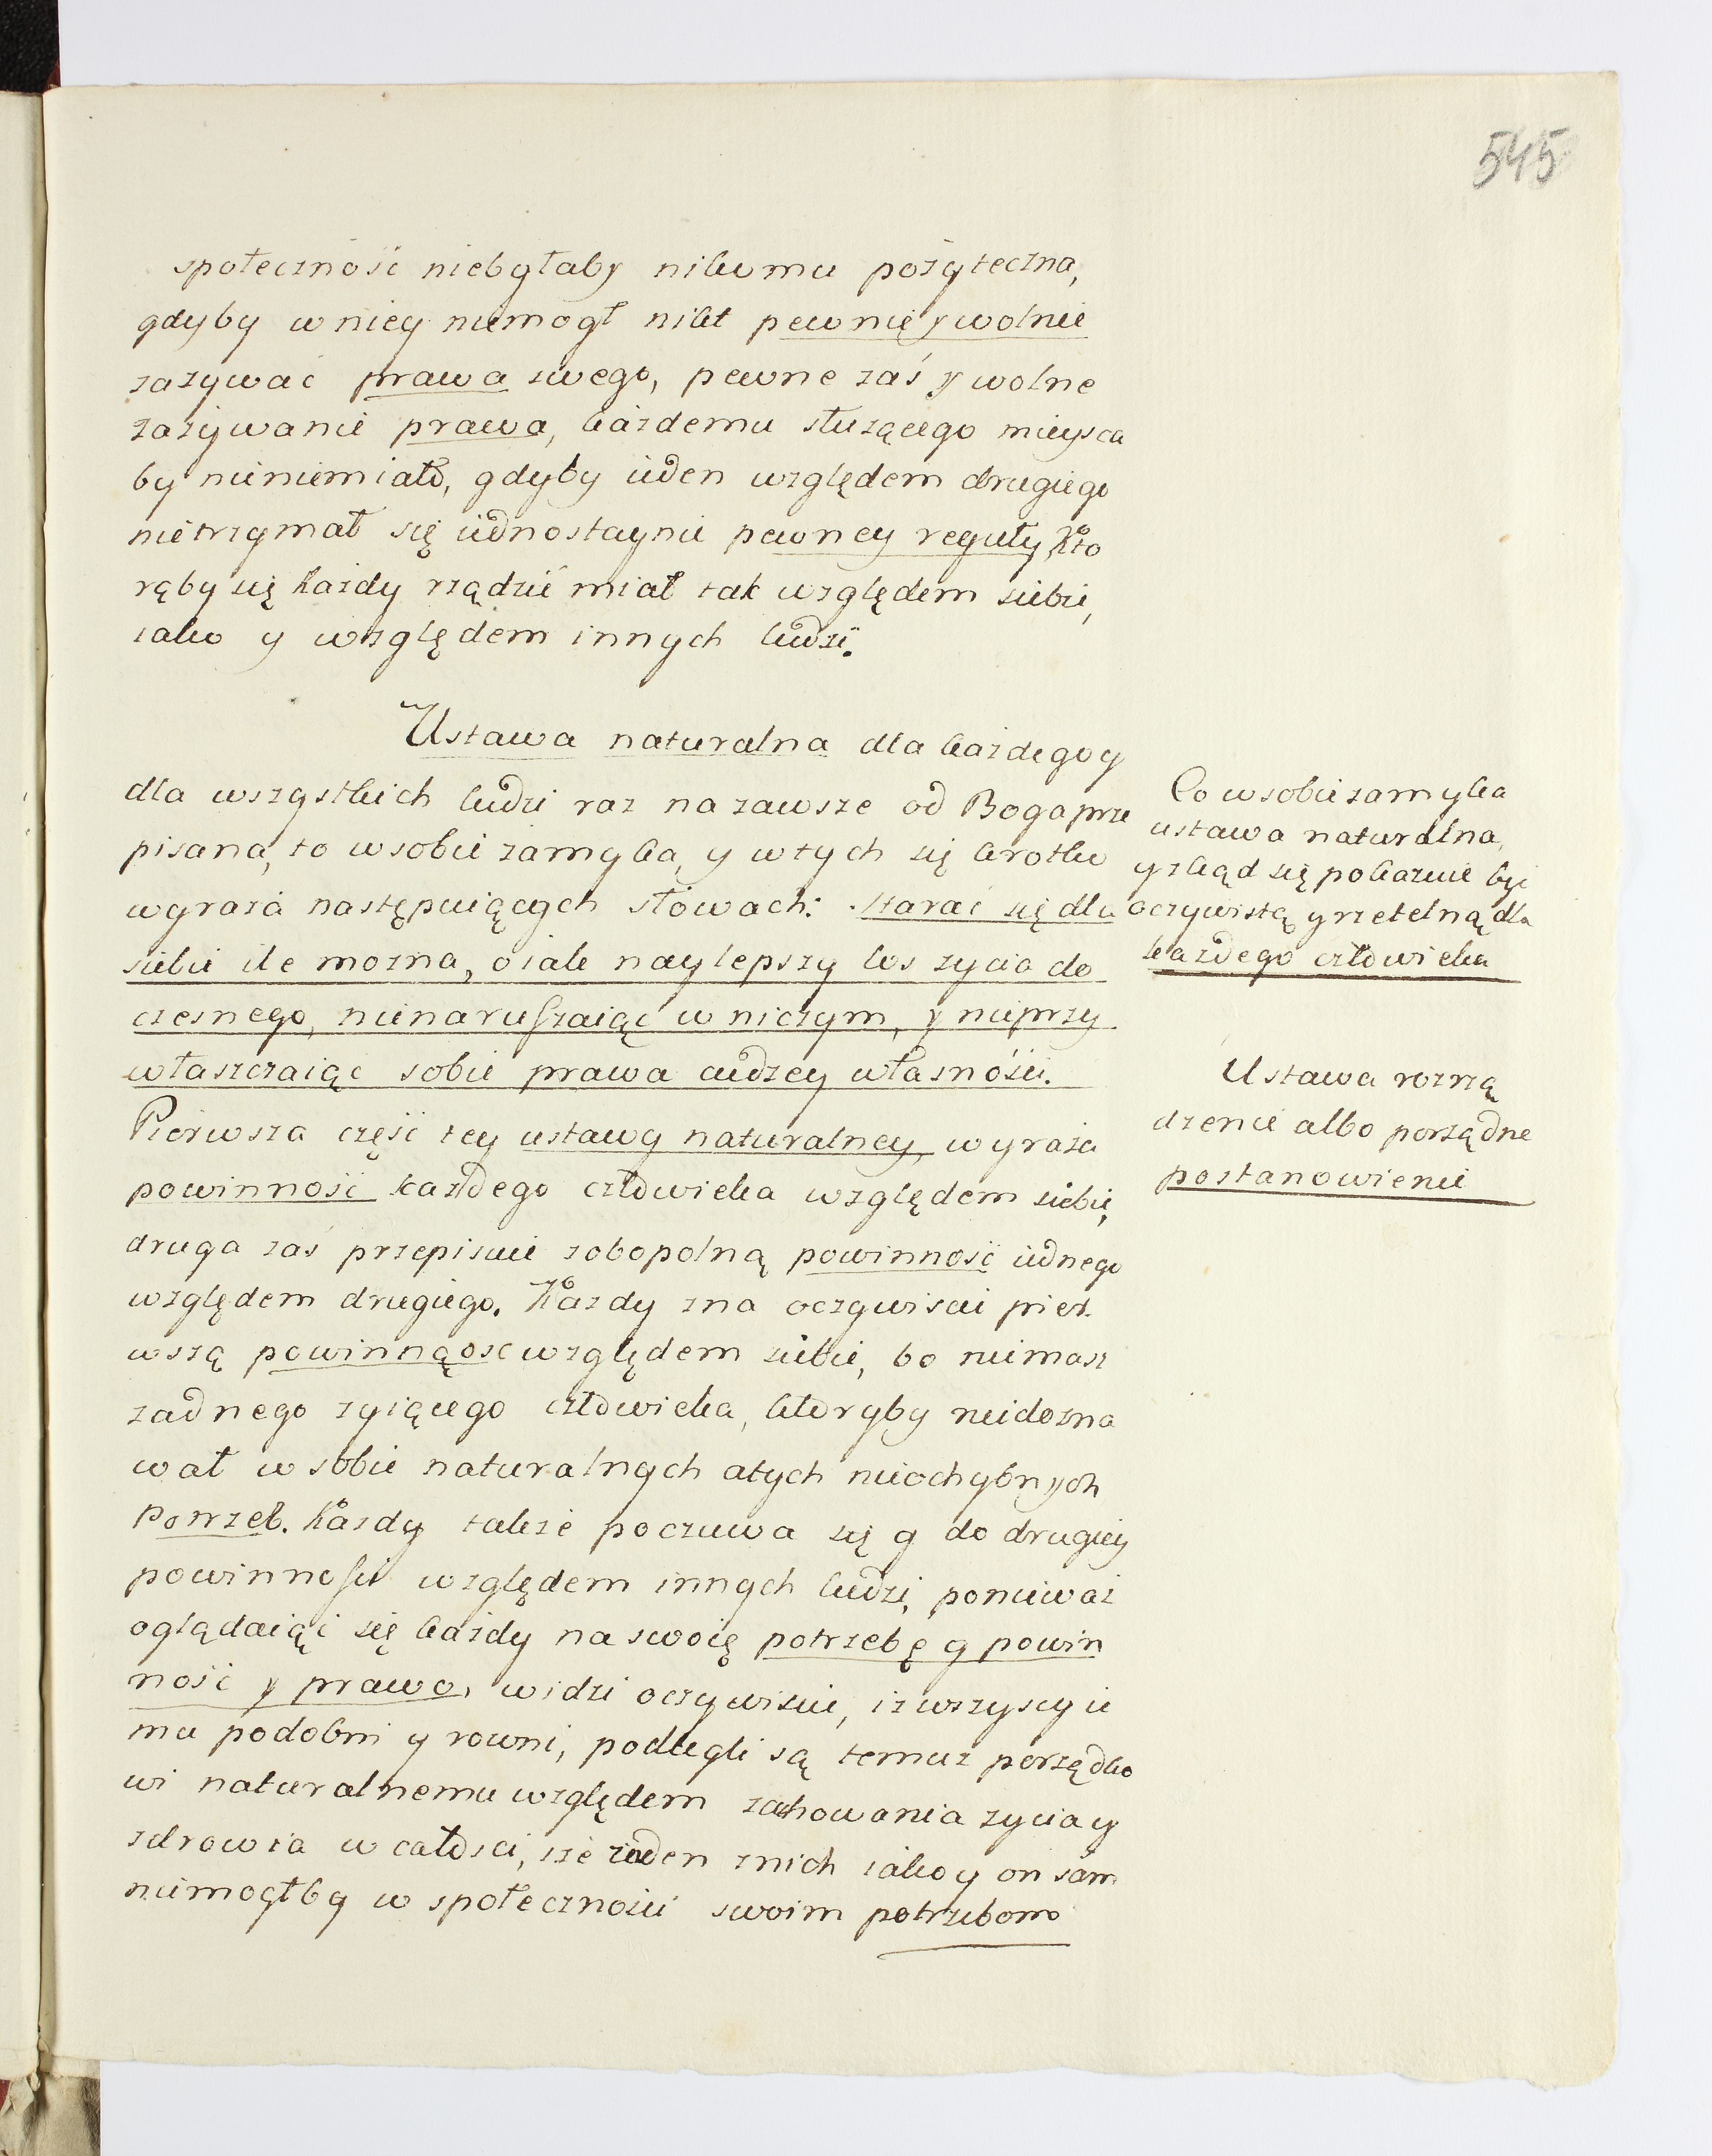 545
społeczność niebyłaby nikomu pożyteczna,
gdyby w niey niemogł nikt pewnie y wolnie
zazywać prawa swego, pewne zaś y wolne
zażywanie prawa, każdemu służącego mieysca
by nieniemiało, gdyby ieden względem drugiego
nietrzymał się iednostaynie pewney reguły, Kto
rąby się każdy rządzić miał tak względem siebie,
iako y względem innych ludzi.
Ustawa naturalna dla każdego y
dla wszystkich ludzi raz na zawsze od Boga prze
pisana, to w sobie zamyka, y w tych się krotko
wyraża następuiących słowach: starać się dla
siebie ile mozna, o iak naylepszy los zycia do
czesnego, nienaruszaiąc w niczym, y nieprzy
właszczaiąc sobie prawa cudzey własności.
Pierwsza część tey ustawy naturalney, wyraża
powinność każdego człowieka względem siebie,
druga zaś przepisuie zobopolną powinność iednego
względem drugiego. Każdy zna oczywiscie pier-
wszą powinnąosc względem siebie, bo niemasz
zadnego zyiącego człowieka, ktoryby niedozna
wał w sobie naturalnych a tych nieochybnych
potrzeb. Każdy także poczuwa się y do drugiey
powinności względem innych ludzi, ponieważ
oglądaiąc się każdy na swoię potrzebę y powin
ność y prawo, widzi oczywiscie, iz wszyscy ie
mu podobni y rowni, podlegli są temuz porządko
wi naturalnemu względem zachowania zycia y
zdrowia w całości, iże żaden z nich iako y on sam
niemogłby w społeczności swoim potrzebom
Co w sobie zamyka
ustawa naturalna,
y zkąd się pokazuie być
oczywistą y rzetelną dla
każdego człowieka
Ustawa rozrzą
dzenie albo porządne
postanowienie